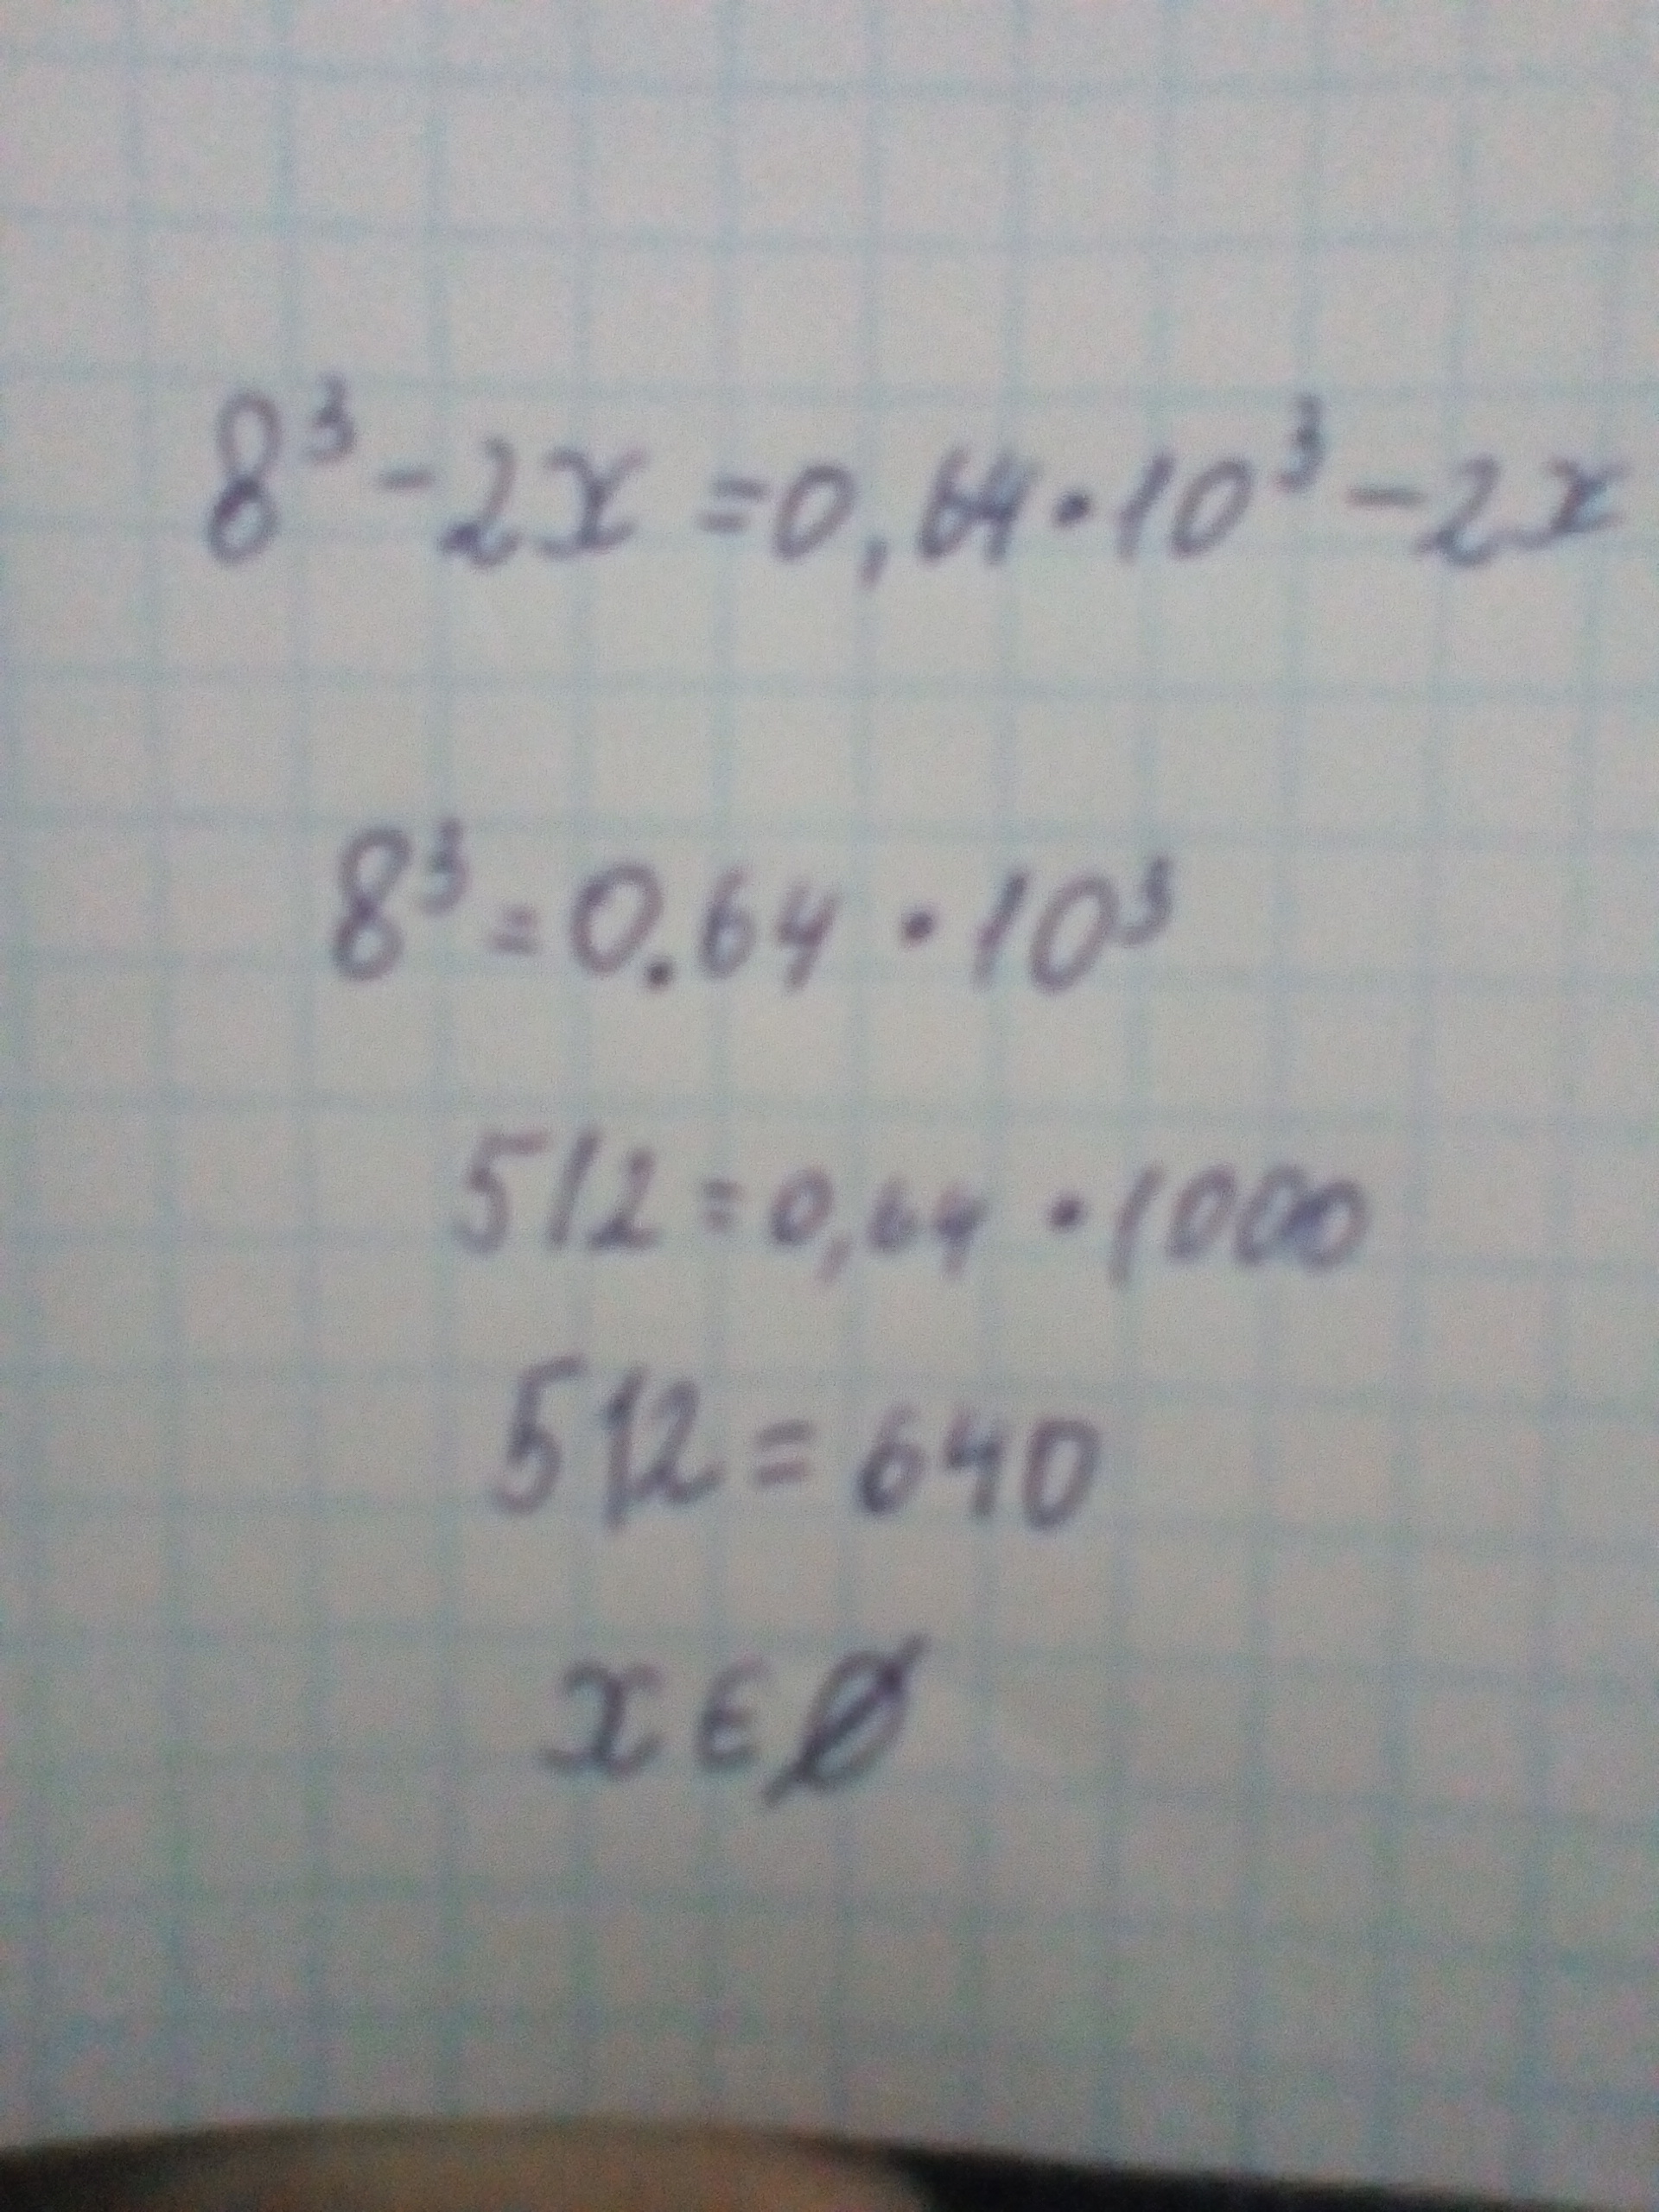 8³ - 2x = 0,64 · 10³ - 2x
8³ = 0.64 · 10³
512 = 0,64 · 1000
512 = 640
x ∈ ∅